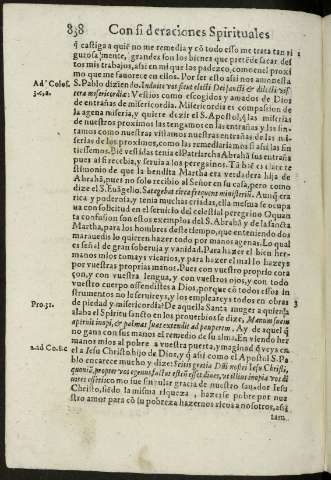 838 Consideraciones Spirituales
q̃ castiga a quiẽ no me remedia y cõ todo esso me trata tan ri
gurosamente, grandes son los bienes que pretẽde sacar des
tos mis trabajos, assi en mi que los padezco, como en el proxi
mo que me fauorece en ellos. Por ser esto assi nos amonesta
Ad Colos. S. Pablo diziendo. Induite vos sicut electi Dei sancti & dilecti vis
3.c.12. cera misericordiæ: Vestios como escogidos y amados de Dios
de entrañas de misericordia. Misericordia es compassion de
la agena miseria, y quiere dezir el S. Apostol, q̃ las miserias
de nuestros proximos las tengamos en las entrañas y las sin
tamos como nuestras vistamos nuestras entrañas de las mi
serias de los proximos, como las remediariamos si assi las sin
tiessemos. Biẽ vestidas tenia el Patriarcha Abrahã sus entrañas
pues assi recebia, y seruia a los peregrinos. Tãbiẽ es claro te
stimonio de que la bendita Martha era verdadera hija de
Abrahã, pues no solo recibio al Señor en su casa, pero como
dize el S. Euãgelio. Satagebat circa frequens ministeriũ. Aunq̃ era
rica y poderosa, y tenia muchas criadas, ella mesma se ocupa
ua con solicitud en el seruicio del celestial peregrino. O quan
ta confusion son estos exemplos del S. Abrahã y de la sancta
Martha, para los hombres deste tiempo, que enteniendo dos
marauedis lo quieren hazer todo por manos agenas. Lo qual
es señal de gran soberuia y vanidad. Para hazer el bien her-
manos mios tomays vicarios, y para hazer el mal lo hazeys
por vuestras propias manos. Pues con vuestro proprio cora
çon, y con vuestra lengua, y con vuestros ojos, y con todo
vuestro cuerpo offendistes a Dios, porque cõ todos essos in
strumentos no le seruireys, y los empleareys todos en obras
de piedad y misericordia? De aquella Santa muger a quien a
3
Pro.31. laba el Spiritu sancto en los prouerbios se dize, Manum suam
aperuit inopi, & palmas suas extendit ad pauperem. Ay de aquel q̃
no gana con sus manos el remedio de su alma. En viendo her
manos mios al pobre a vuestra puerta, y imaginad q̃ veys en
2.ad Co.8.c. el a Iesu Christo hijo de Dios, y q̃ assi como el Apostol S. Pa
blo encarece mucho y dize: Scitis gratiã Dñi nostri Iesu Christi,
quoniã propter vos egenus factus est cũ esset diues, vt illius inopia vos di
uites essetis: como fue singular gracia de nuestro saluador Iesu
Christo, siẽdo la misma riqueza, hazerse pobre por nue
stro amor para cõ su pobreza hazernos ricos a nosotros, assi
tam